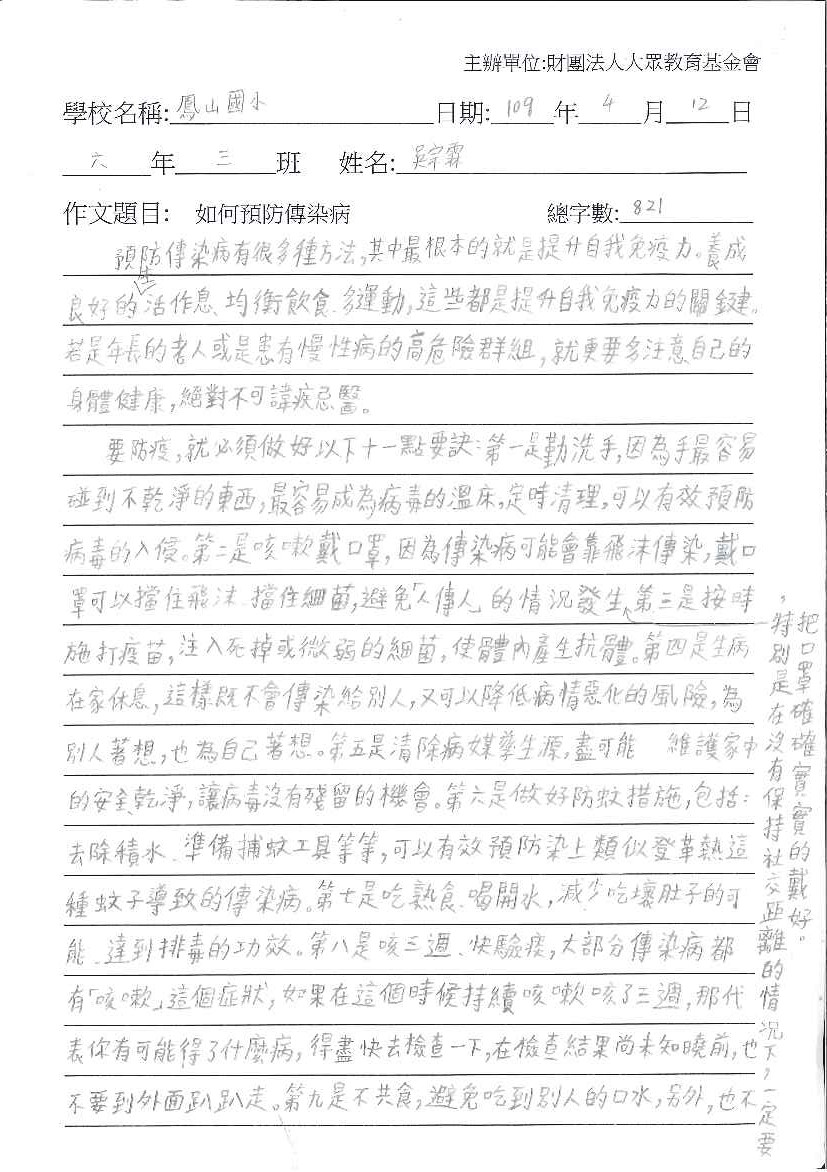 主辦單位:財團法人大眾教育基金會
學校名稱:鳳山國小 日期:109年4月12日
六年三班 姓名:吳宗霖
作文題目: 如何預防傳染病 總字數:821
預防傳染病有很多種方法,其中最根本的就是提升自我免疫力。養成
良好的生活作息、均衡飲食、多運動,這些都是提升自我免疫力的關鍵。
若是年長的老人或是患有慢性病的高危險群組,就更要多注意自己的
身體健康,絕對不可諱疾忌醫。
要防疫,就必須做好以下十一點要訣:第一是勤洗手,因為手最容易
碰到不乾淨的東西,最容易成為病毒的溫床,定時清理,可以有效預防
病毒的入侵。第二是咳嗽戴口罩,因為傳染病可能會靠飛沫傳染,戴口
罩可以擋住飛沫、擋住細菌,避免「人傳人」的情況發生。第三是按時
施打疫苗,注入死掉或微弱的細菌,使體內產生抗體。第四是生病
在家休息,這樣既不會傳染給別人,又可以降低病情惡化的風險,為
別人著想,也為自己著想。第五是清除病媒孳生源,盡可能 維護家中
的安全、乾淨,讓病毒沒有殘留的機會。第六是做好防蚊措施,包括:
去除積水、準備捕蚊工具等等,可以有效預防染上類似登革熱這
種蚊子導致的傳染病。第七是吃熟食、喝開水,減少吃壞肚子的可
能、達到排毒的功效。第八是咳三週、快驗痰,大部分傳染病都
有「咳嗽」這個症狀,如果在這個時候持續咳嗽咳了三週,那代
表你有可能得了什麼病,得盡快去檢查一下,在檢查結果尚未知曉前,也
不要到外面趴趴走。第九是不共食,避免吃到別人的口水,另外,也不
,特別是在沒有保持社交距離的情況下,一定要
把口罩確確實實的戴好。